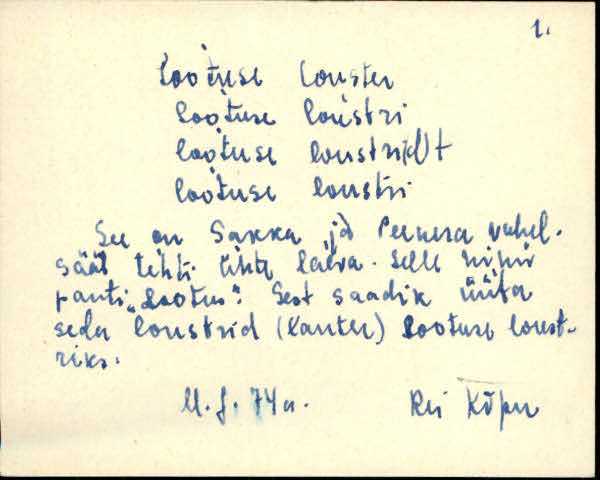 1.
Lootuse louster
Lootuse loustri
lootuse loustri(d)t
lootuse loustri
See on Sakka ja Peenera vahel.
sääl tehti ühte laeva. Selle nimi
panti „Lootus“. Sest saadik üüta
seda loustrid (Kanter) Lootuse loust-
riks.
M. J. 74 a. Rei Kõpu